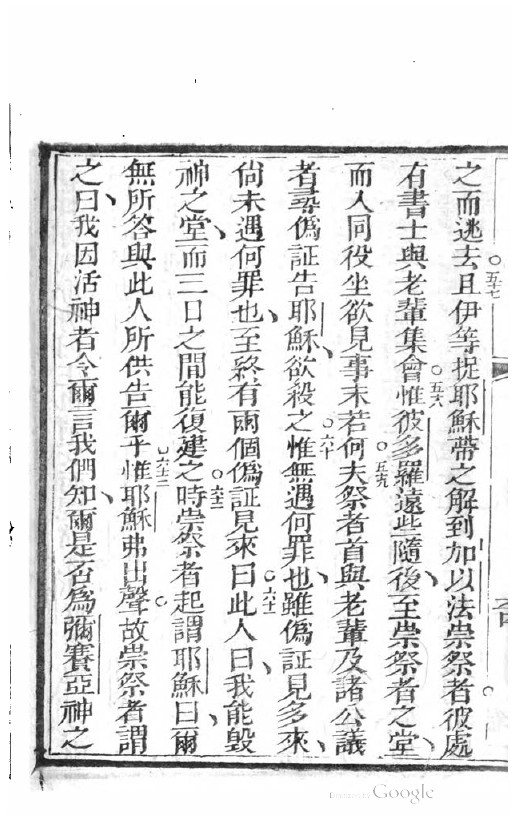 之而逃去○五十七且伊等捉耶穌帶之解到加以法崇祭者彼處
有書士與老輩集會○五十八惟彼多羅遠些隨後、至崇祭者之堂、
而入同役坐欲見事末若何○五十九夫祭者首與老輩及諸公議
者尋偽証告耶穌、欲殺之○六十惟無遇何罪也、雖偽証見多來、
尚未遇何罪也、至終有兩個偽証見來○六十一曰此人曰、我能毀
神之堂、而三日之間能復建之○六十二時崇祭者起謂耶穌曰、爾
無所答與此人所供告爾乎○六十三惟耶穌弗出聲○故崇祭者謂
之曰、我因活神者令爾言我們知、爾是否為彌賽亞神之
Digitized by Google